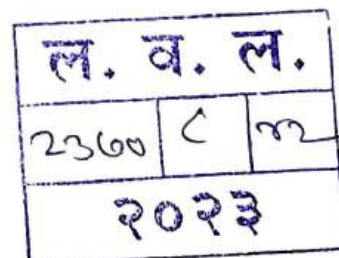 ल. व. ल.
२३७० ८
२०२३